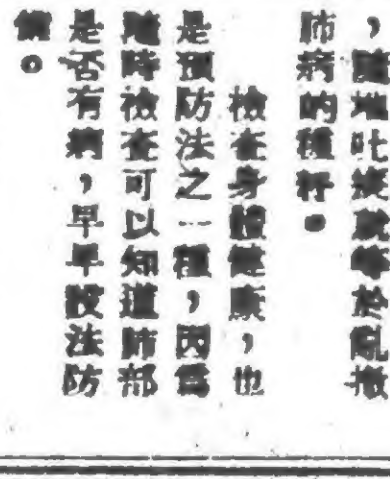 ，隨地吐痰就等於亂撒
肺病的種籽。
檢查身體健康，也
是預防法之一種，因爲
隨時檢查可以知道肺部
是否有病，早早設法防
備。